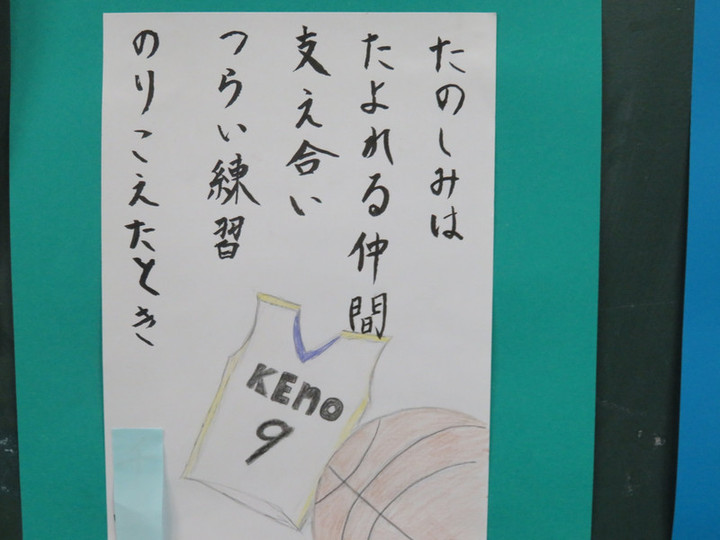 たのしみは
たよれる仲間
支え合い
つらい練習
のりこえたとき
KEMO
9